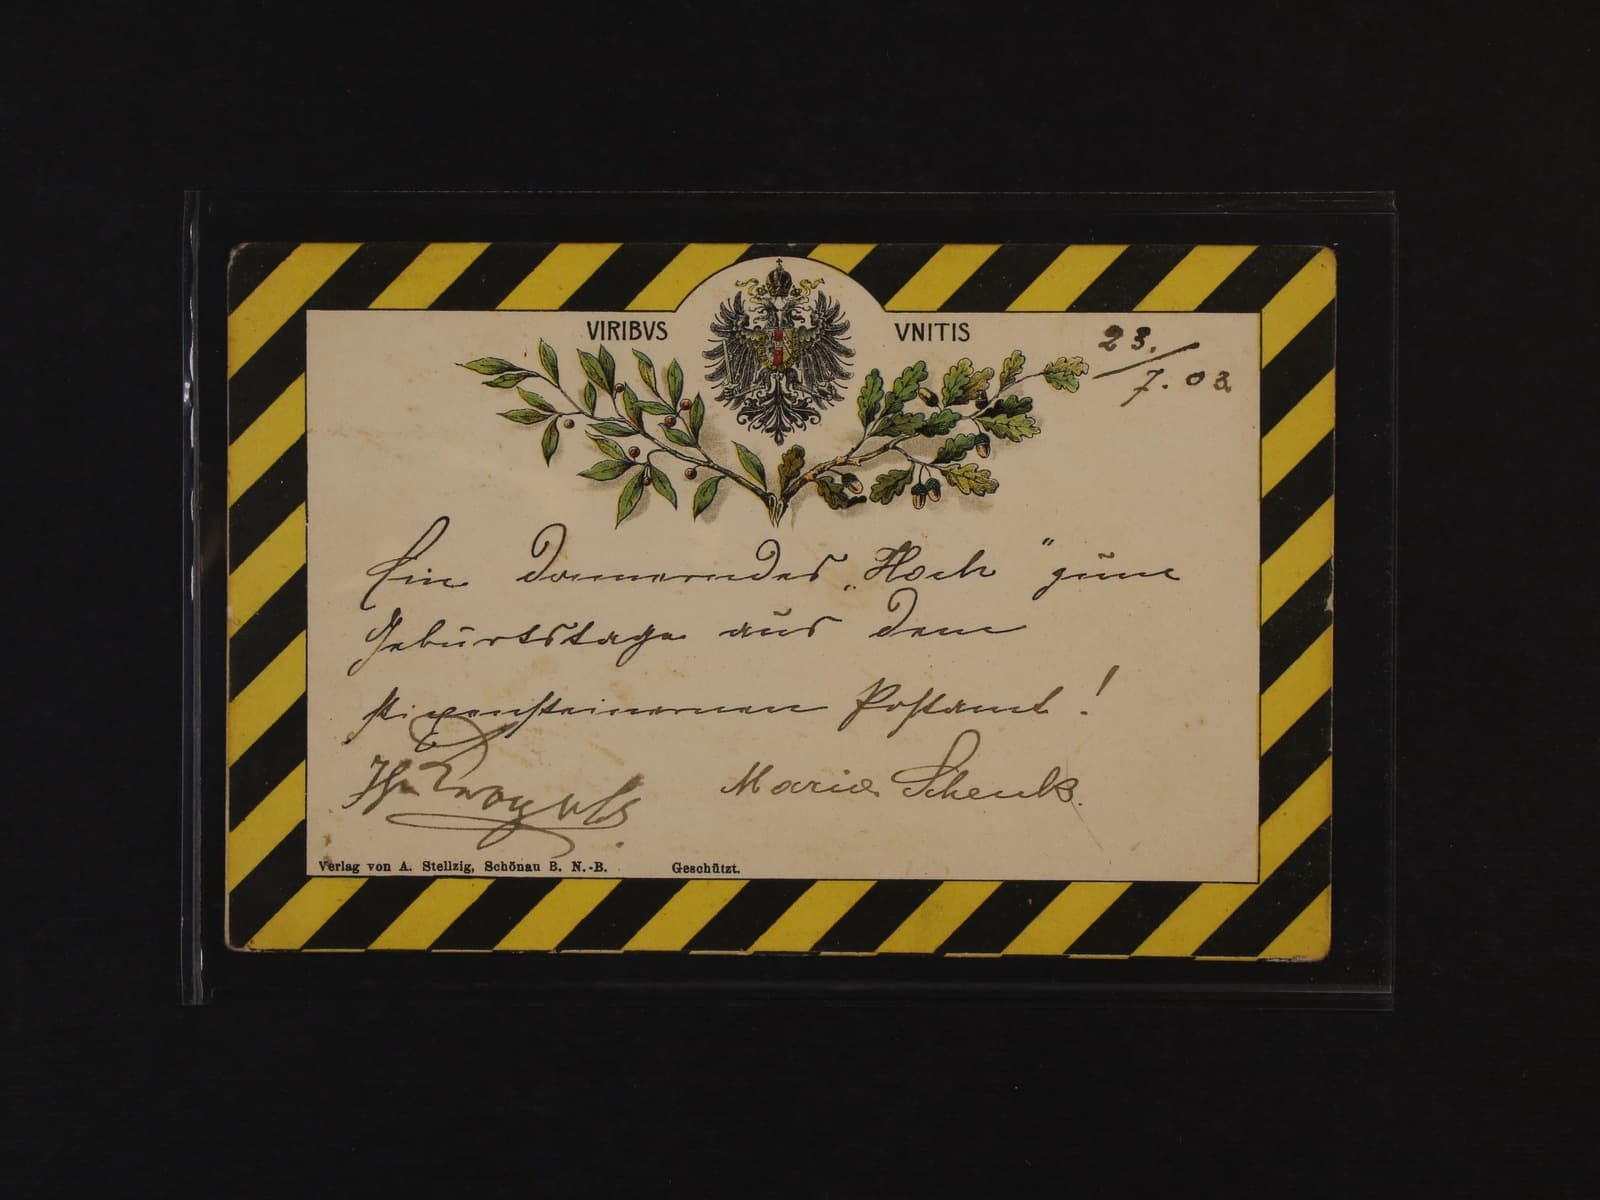 VIRIBVS VNITIS
23./7. 03
Ein donnerndes „Hoch" zum
Geburtstage aus dem
stixensteinernen Postamt!
Marie Schenk.
Verlag von A. Stellzig, Schönau B. N.-B. Geschützt.